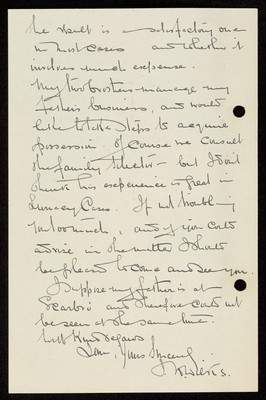 the result is a satisfactory one
in most cases and whether it
involves much expense.
My two brothers manage my
father's business, and would
like to take steps to acquire
possession. Of course we consult
the family solicitor – but I don't
think his experience is great in
Lunacy Cases. If not troubling
you too much, and if you could
advise in the matter I should
be pleased to come and see you.
I suppose my father is at
Scarbro and therefore could not
be seen at the same time.
With Kind regards
I am, Yours Sincerely